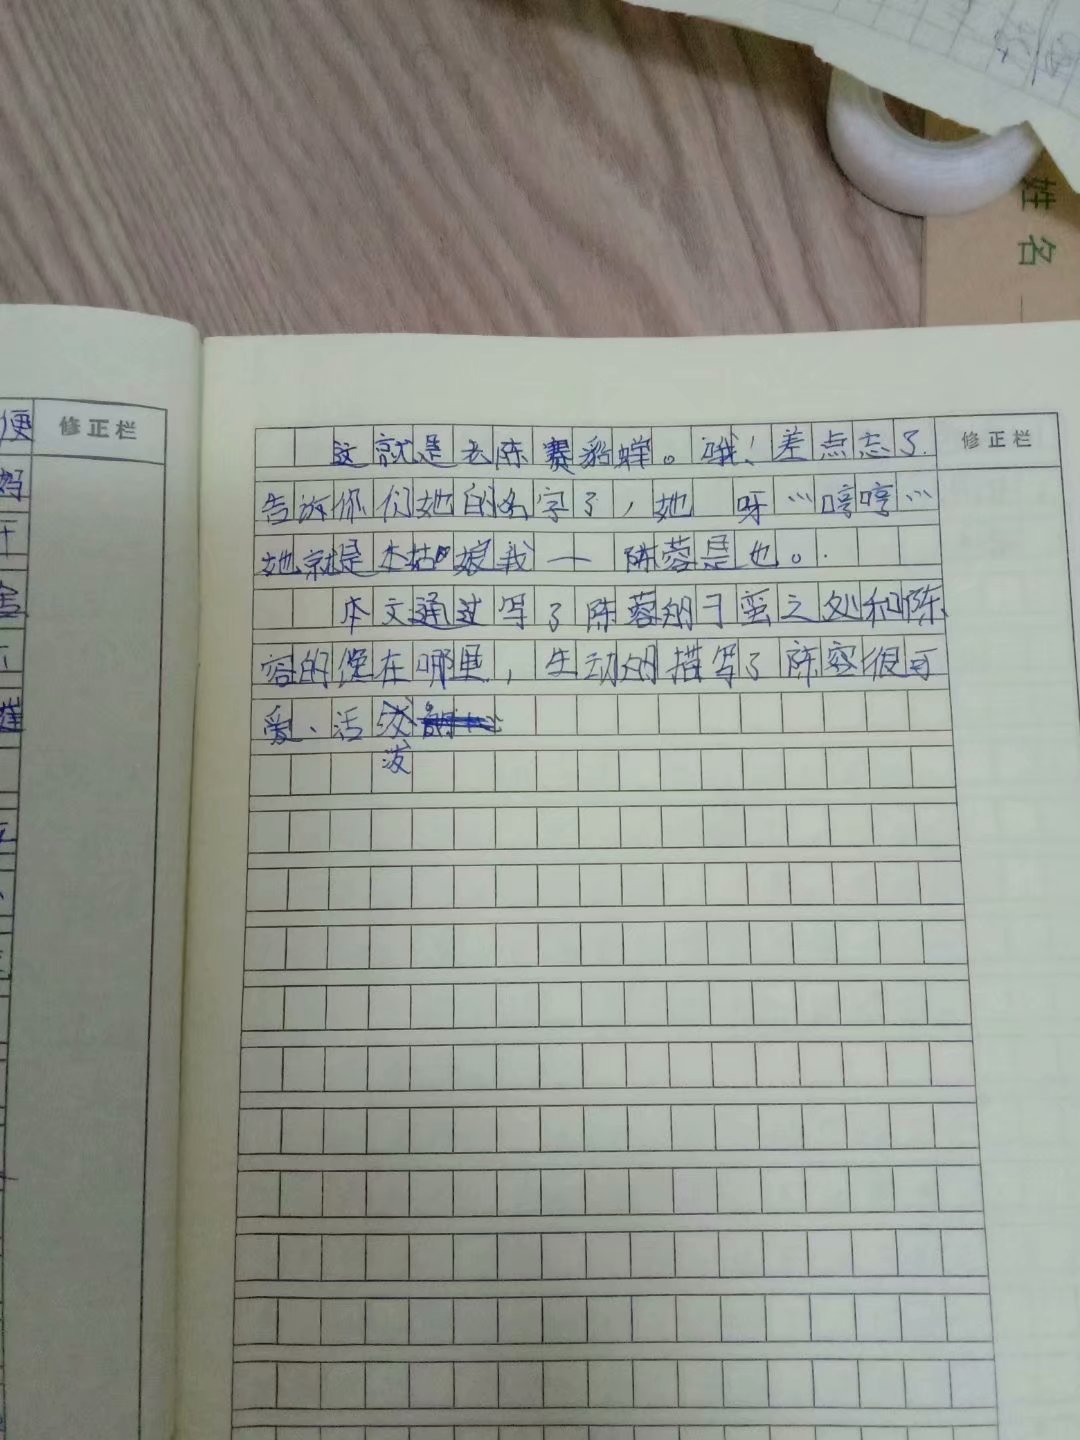 修正栏
便
好
这就是老陈赛貂蝉。哦！差点忘了
告诉你们她的名字了，她呀…哼哼…
她就是本姑娘我一陈蓉是也。
本文通过写了陈蓉的刁蛮之处和陈
容的馋在哪里，生动的描写了陈容很可
爱、活泼
泼
修正栏
姓名